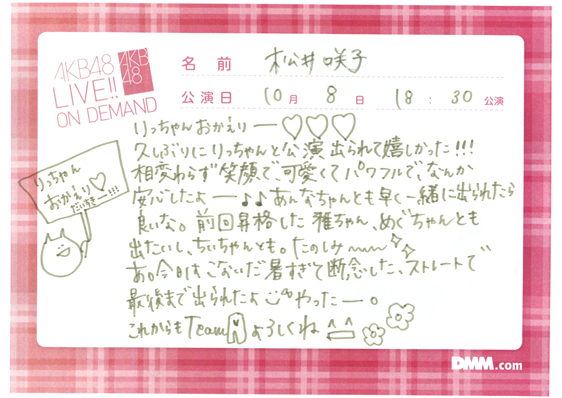 AKB48
LIVE!!
ON DEMAND
AKB
48
名前 松井咲子
公演日 10月 8日 18:30公演
りっちゃんおかえりー♡♡♡
久しぶりにりっちゃんと公演出られて嬉しかった!!!
相変わらず笑顔で、可愛くてパワフルで、なんか
安心したよー♪♪あんなちゃんとも早く一緒に出られたら
良いな。前回昇格した雅ちゃん、めぐちゃんとも
出たいし、ちぃちゃんとも。たのしみ〜〜
あ。今日はこないだ暑すぎて断念した、ストレートで
最後まで出られたよ やったー。
これからもTeamAよろしくね
りっちゃん
おかえり♡
だいすきー!!!
DMM.com